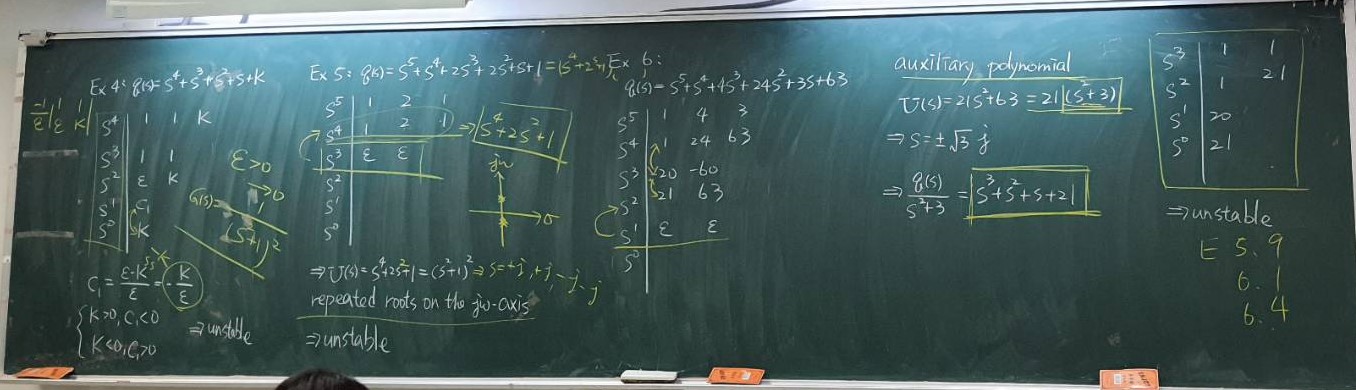 Ex 4: q(s)=s⁴+s³+s²+s+K
s⁴ 1 1 K
s³ 1 1
s² ε K
s¹ C₁
s⁰ K
ε>0
→0
C₁ = (ε-K)/ε = -K/ε
{K>0, C₁<0
K<0, C₁>0
⇒ unstable
Ex 5: q(s)=s⁵+s⁴+2s³+2s²+s+1
s⁵ 1 2 1
s⁴ 1 2 1 ⇒ s⁴+2s²+1
s³ ε ε
s²
s¹
s⁰
jω
σ
⇒ U(s)=s⁴+2s²+1=(s²+1)² ⇒ s=+j, +j, -j, -j
repeated roots on the jω-axis
⇒ unstable
Ex 6:
q(s)=s⁵+s⁴+4s³+24s²+3s+63
s⁵ 1 4 3
s⁴ 1 24 63
s³ -20 -60
s² 21 63
s¹ ε ε
s⁰
auxiliary polynomial
U(s)=21s²+63=21(s²+3)
⇒ s=±√3 j
⇒ q(s)/(s²+3) = s³+s²+s+21
s³ 1 1
s² 1 21
s¹ -20
s⁰ 21
⇒ unstable
E 5.9
6.1
6.4